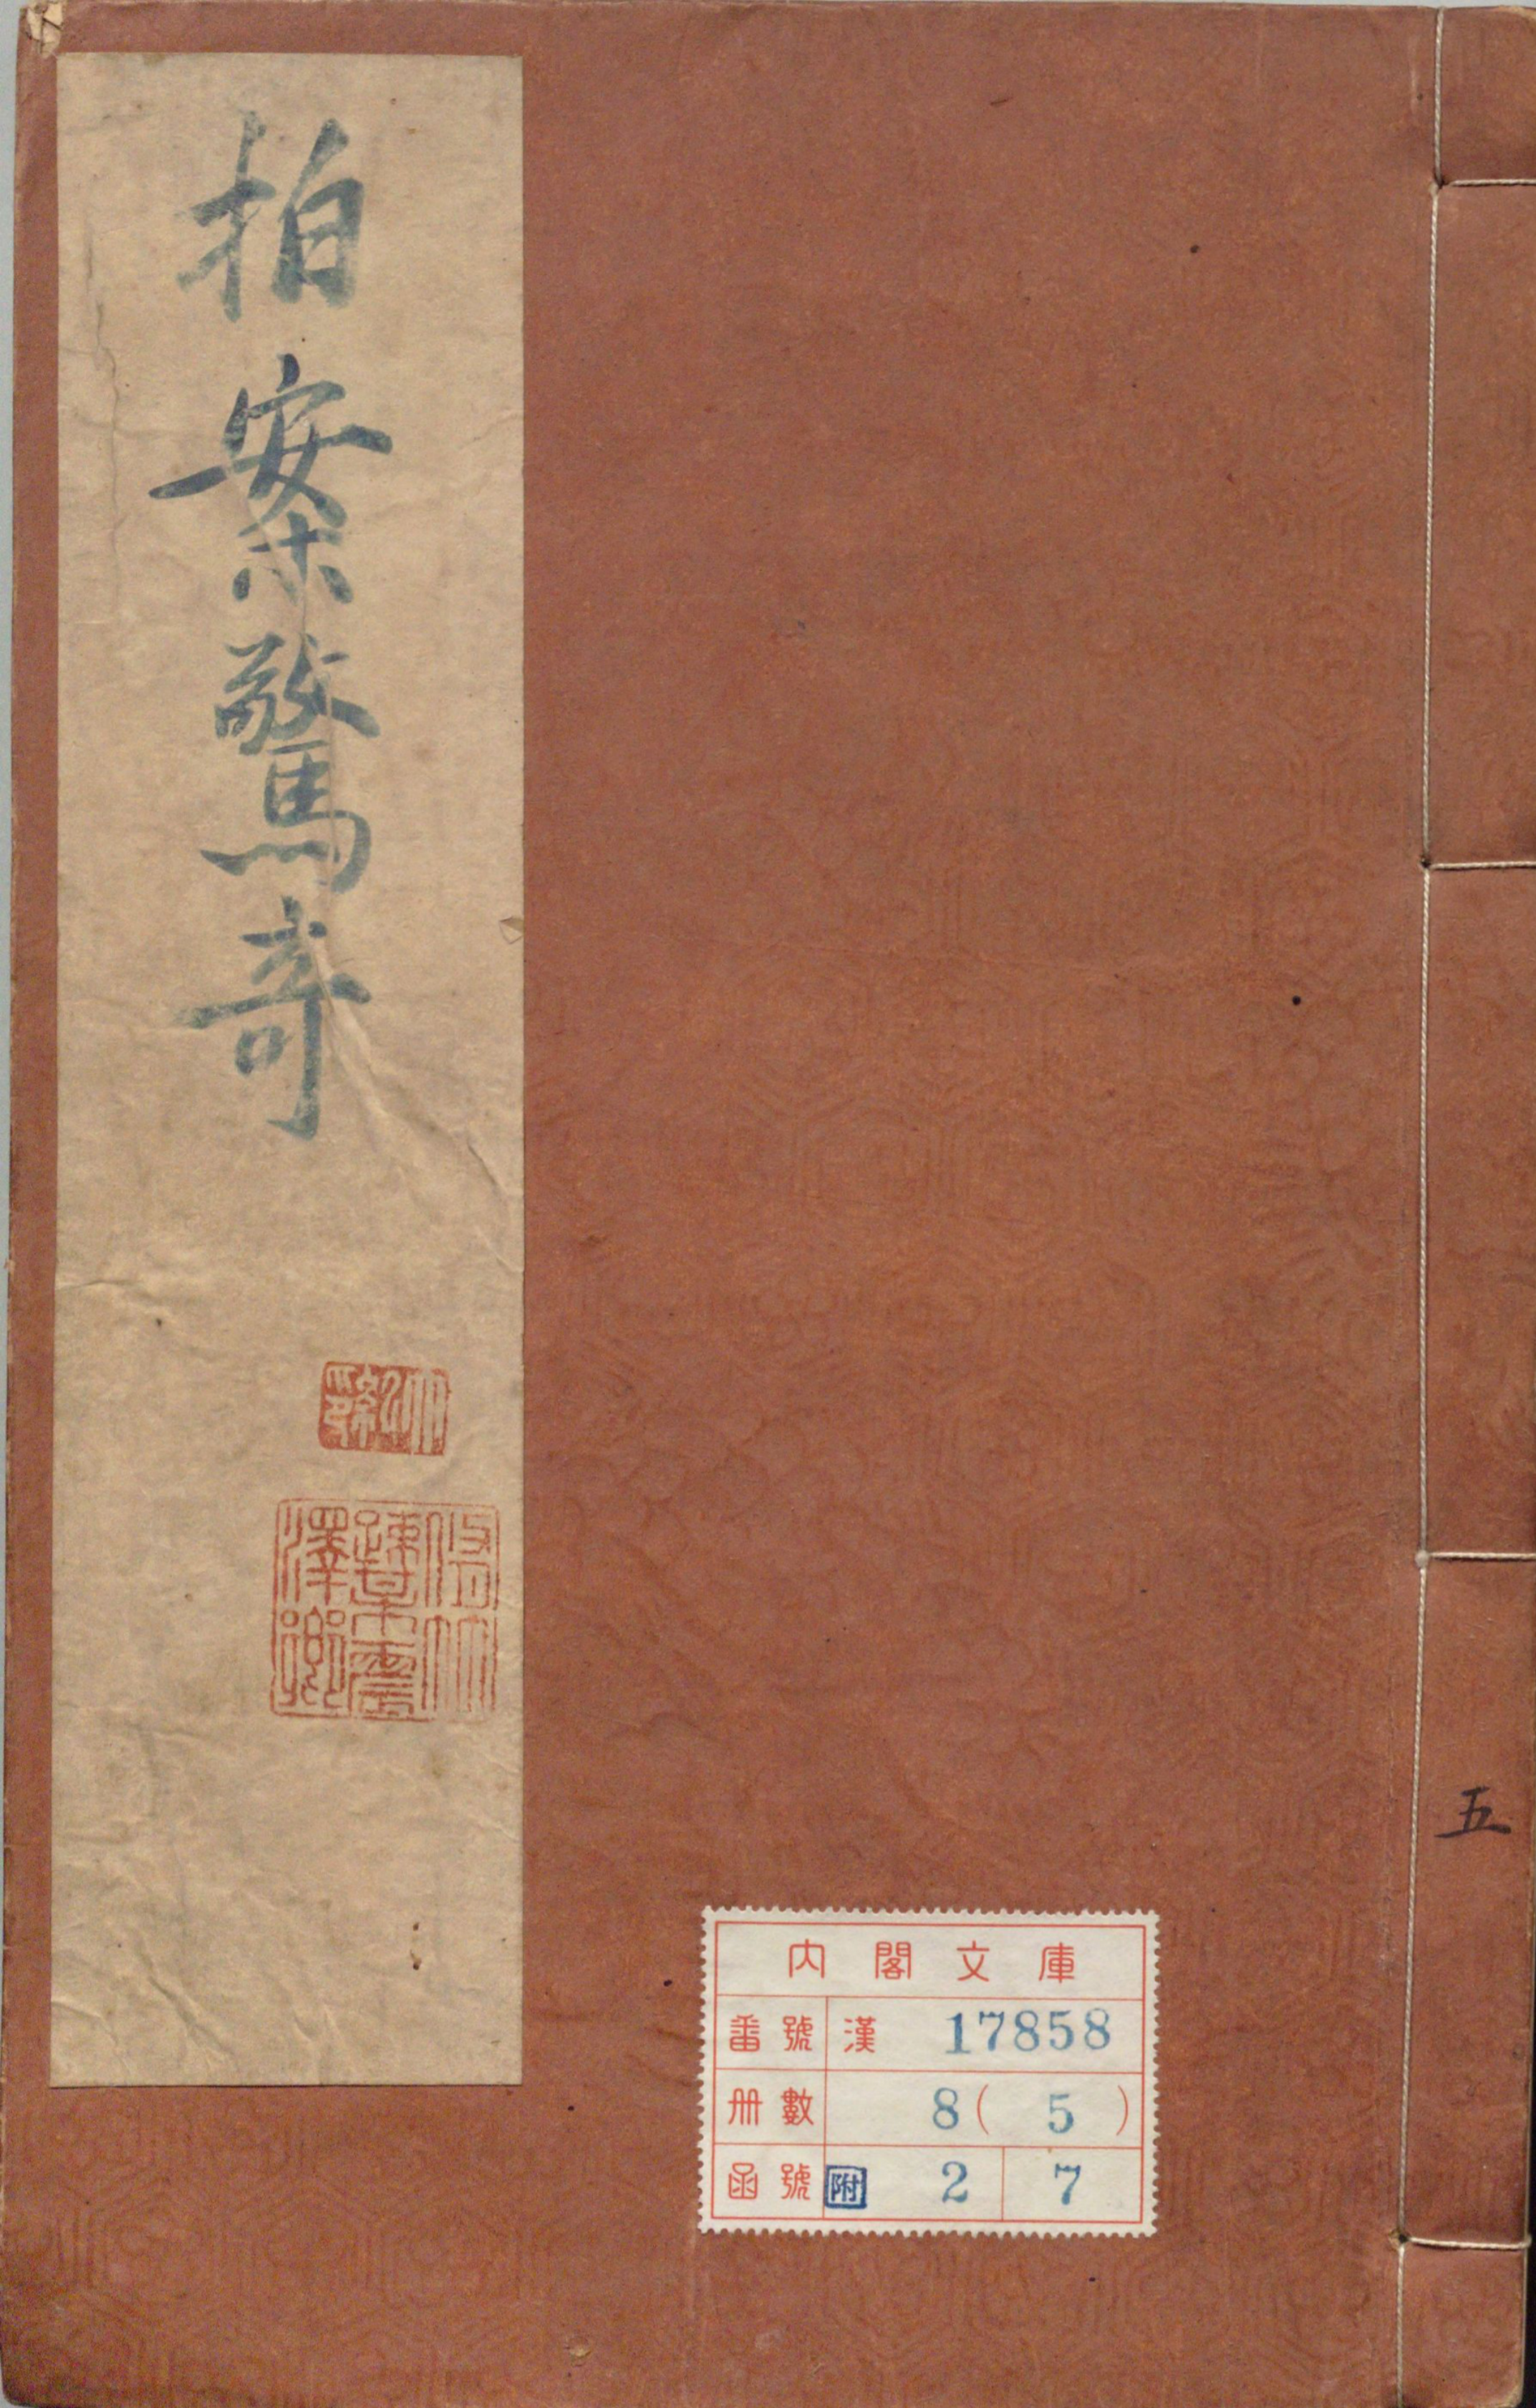 拍案驚奇
五
內閣文庫
番號 漢 17858
冊數 8(5)
函號 附 2 7